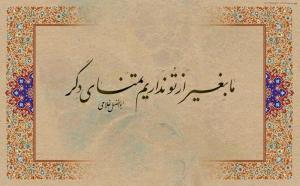 ما بغیر از تو نداریم تمنای دگر
ابوالفضل غلامی